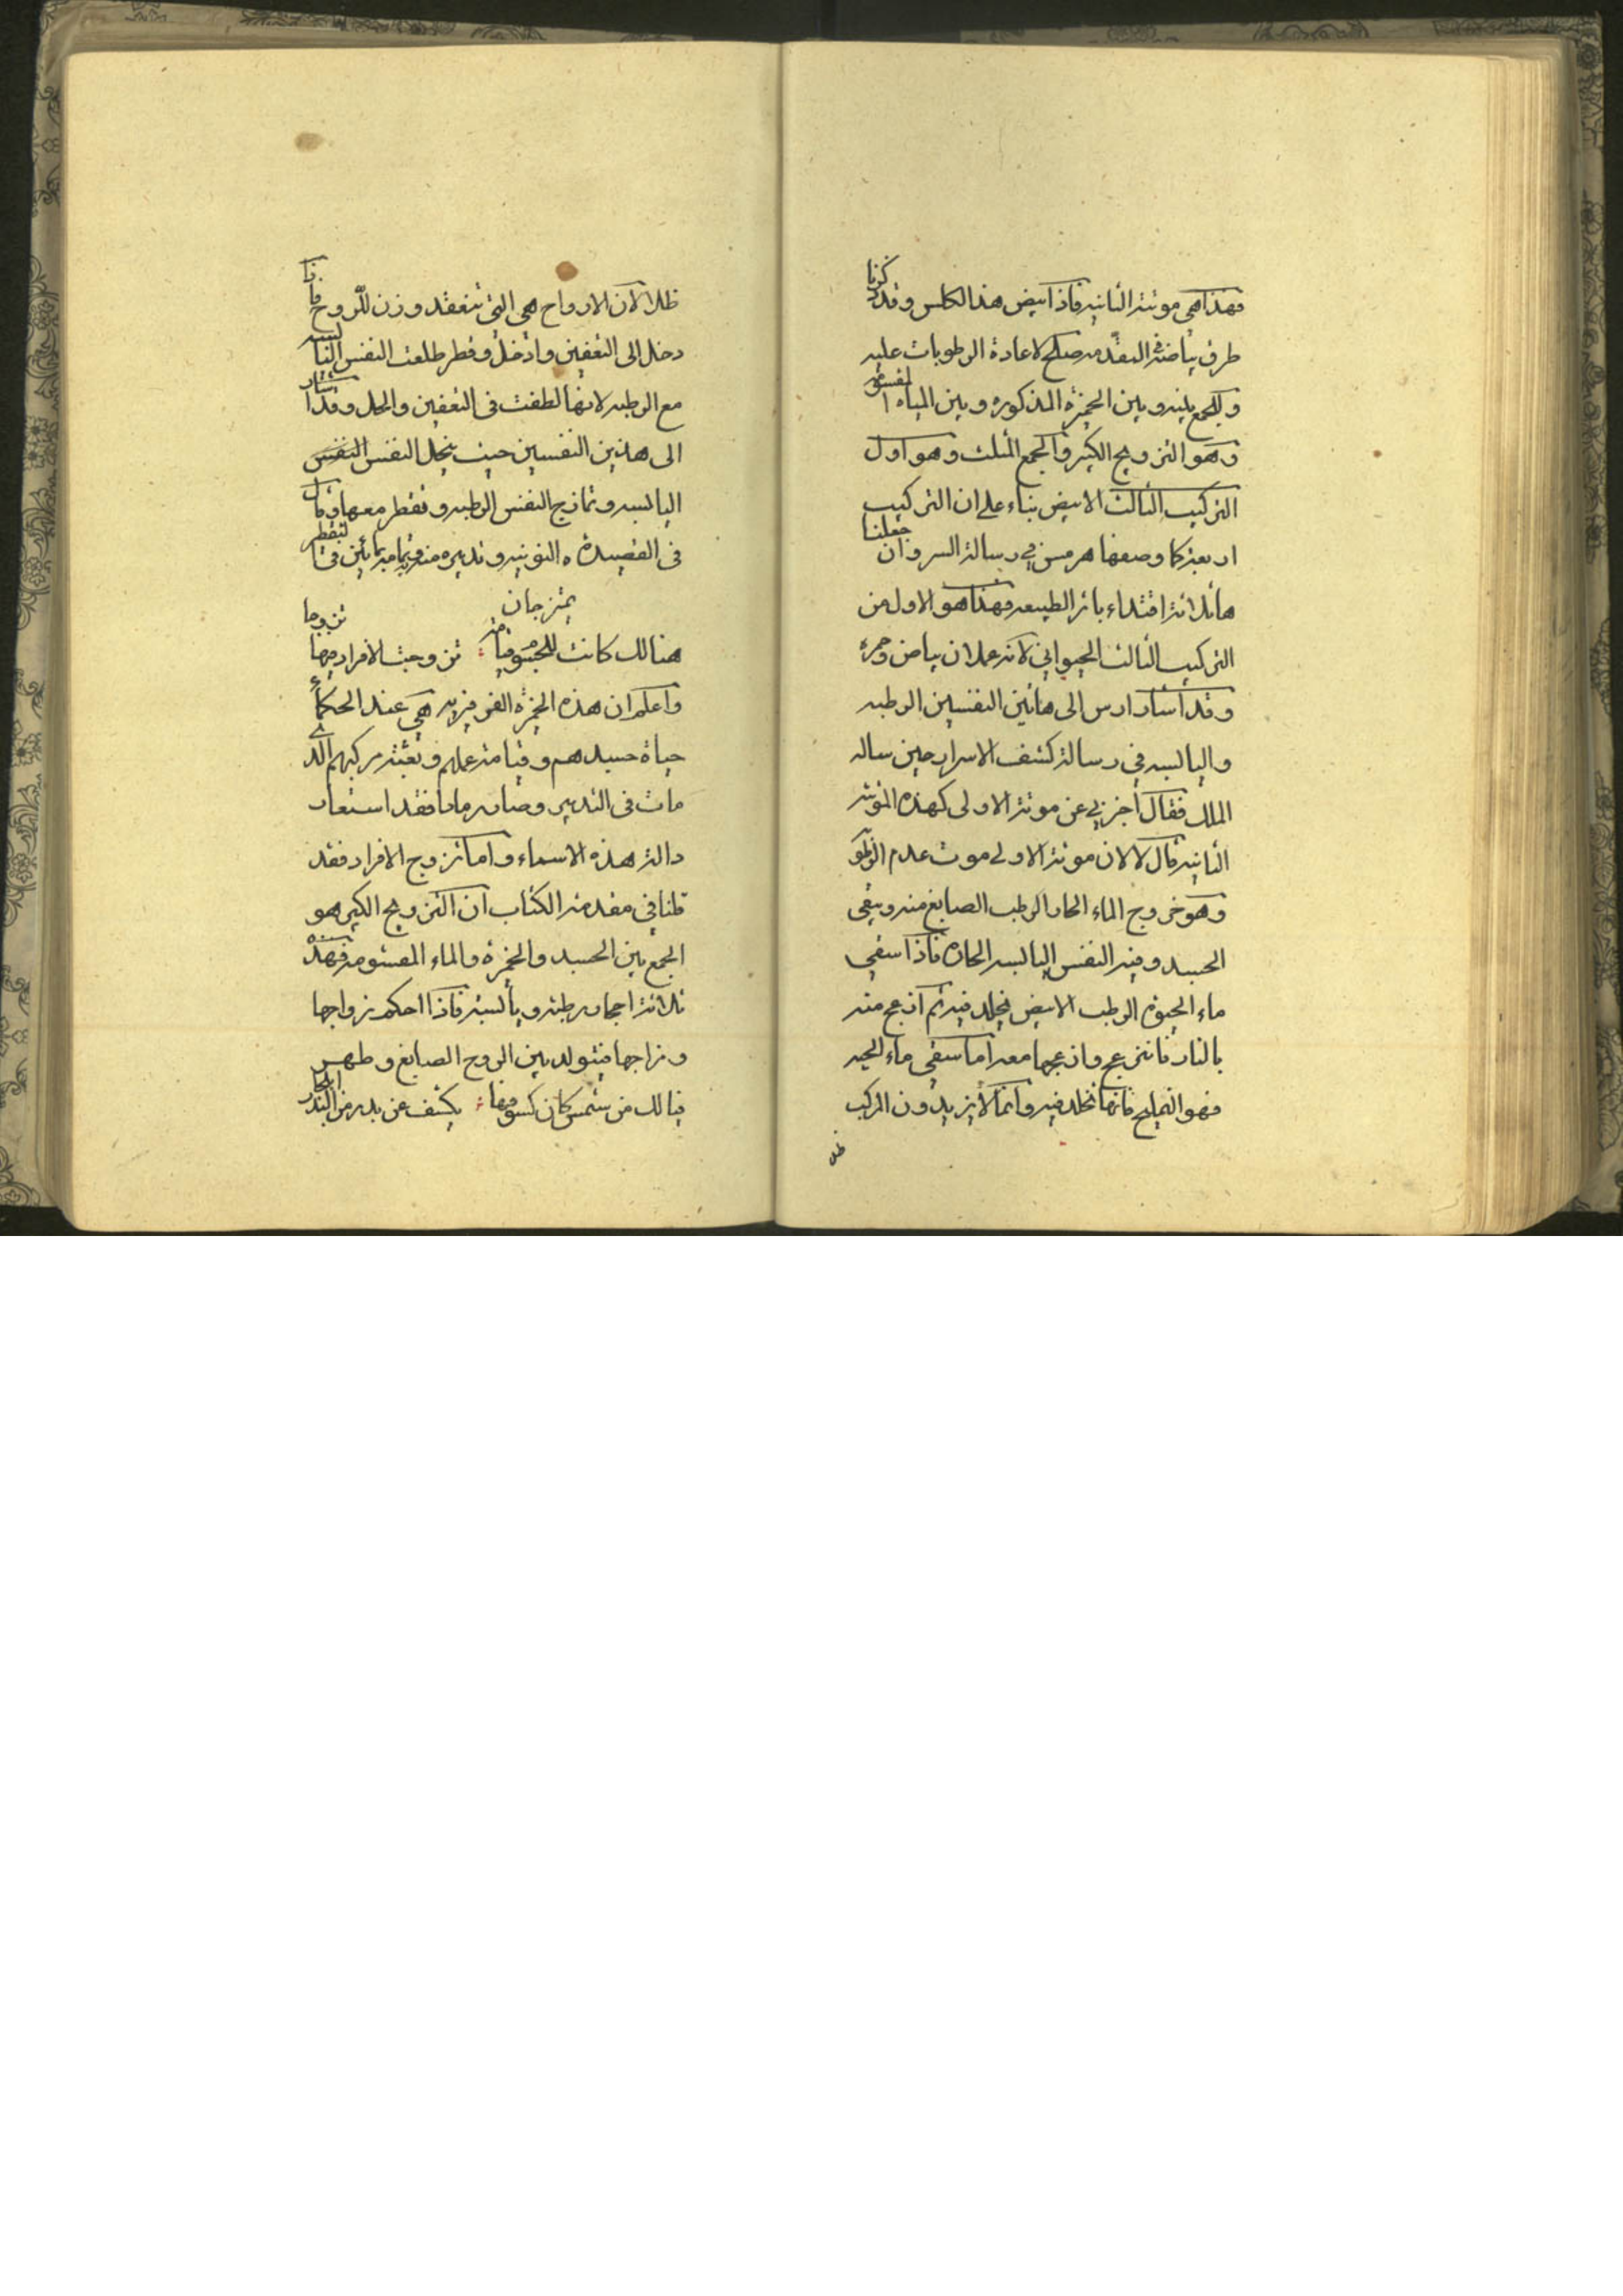 فهذا هي موتته الثانيه فاذا ابيض هذا الكلس وقد ذكرنا
طرق بياضه في المقدمه صلح لاعادة الرطوبات عليه
وللجمع بينه وبين الخميرة المذكوره وبين المياه المقسومه
وهو التزويج الكبير والجمع المثلث وهو اول
التركيب الثالث الابيض بناء على ان التركيب
اربعة كما وصفها هرمس في رسالة السر وان جعلنا
ها ثلاثة اقتداء باثر الطبيعه فهذا هو الاول من
التركيب الثالث الحيواني لانه عملان بياض وحمرة
وقد اشار ارس الى هاتين النفسين الرطبه
واليابسه في رسالة كشف الاسرار حين ساله
الملك فقال اخبرني عن موتته الاولى كهذه الموتة
الثانيه قال لا لان موتته الاولى موت عدم
وهو خروج الماء الحار الرطب الصابغ منه ويبقى
الجسد وفيه النفس اليابسه الحاره فاذا سقي
ماء الحيوة الرطب الابيض ينحل فيه ثم ازعج منه
بالنار فانزعج وازعجها معه اما سقي ماء الحيه
فهو التمليح فانها تنحل فيه وانما لا يزيدون المركب
ظلا
ظلا لان الارواح هي التي تنعقد وزن للروح فاذا
دخل الى التعفين وادخل وقطر طلعت النفس اليابسه
مع الرطبه لانها لطفت في التعفين والحل وقد اشار
الى هذين النفسين حيث ينحل النفس النفس
اليابسه وتمازج النفس الرطبه وتقطر معها وقال
في القصيدة النونيه وتدبيره منه
يمتزجان
هنالك كانت للجسوم تزوجت الافراد فيها
واعلم ان هذه الخميرة الفرفيريه هي عند الحكماء
حياة جسدهم وقيامة عملهم وبعثة مركبهم الذي
مات في التدبير وصار رمادا فقد استعار
دالة هذه الاسماء واما تزويج الافراد فقد
قلنا في مقدمة الكتاب ان التزويج الكبير هو
الجمع بين الجسد والخميرة والماء المقسومه فهذه
ثلاثة اجساد رطبة ويابسة فاذا احكم زواجها
ومزاجها فيتولد بين الروح الصابغ وطهر
فيا لك من شمس كان كسوفها يكشف عن بدر من